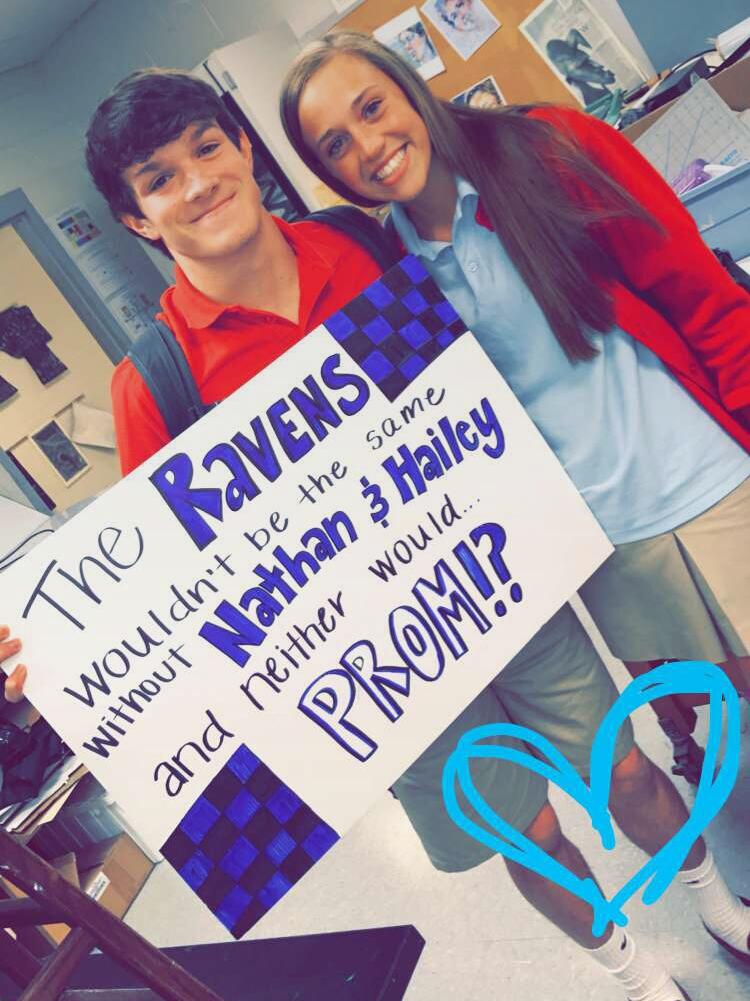 The RAVENS
wouldn't be the same
without Nathan & Hailey
and neither would...
PROM!?